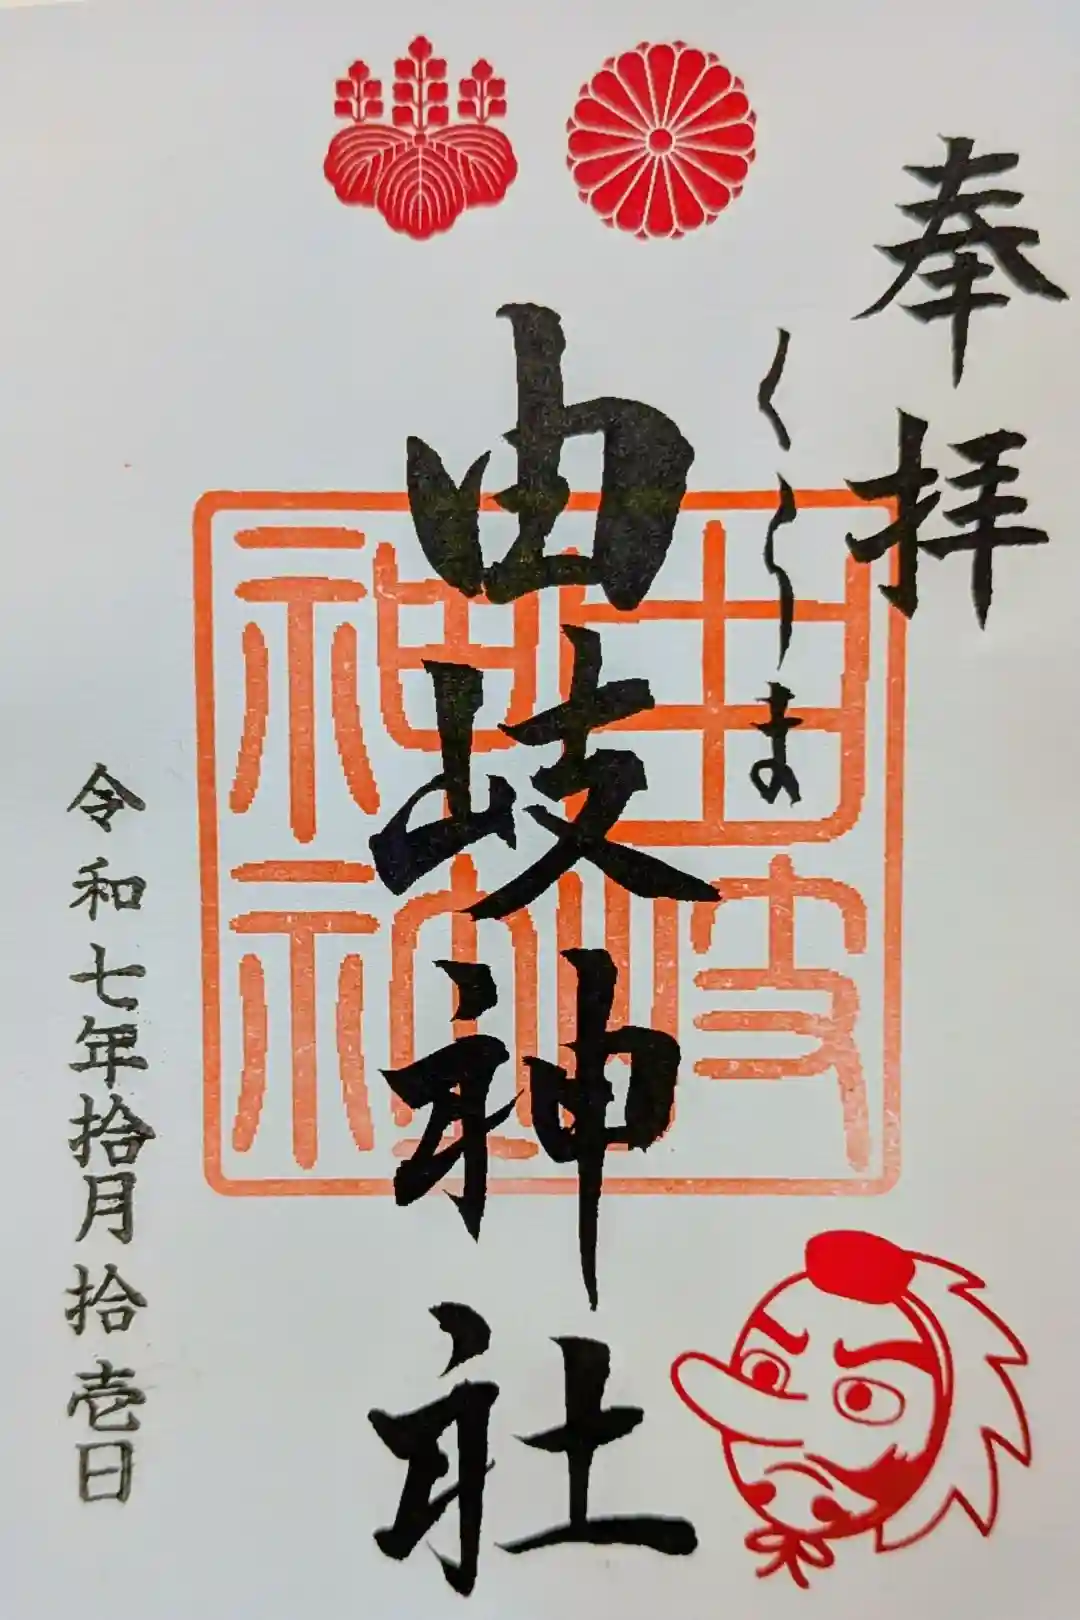 奉拝
くらま
由岐神社
令和七年拾月拾壱日